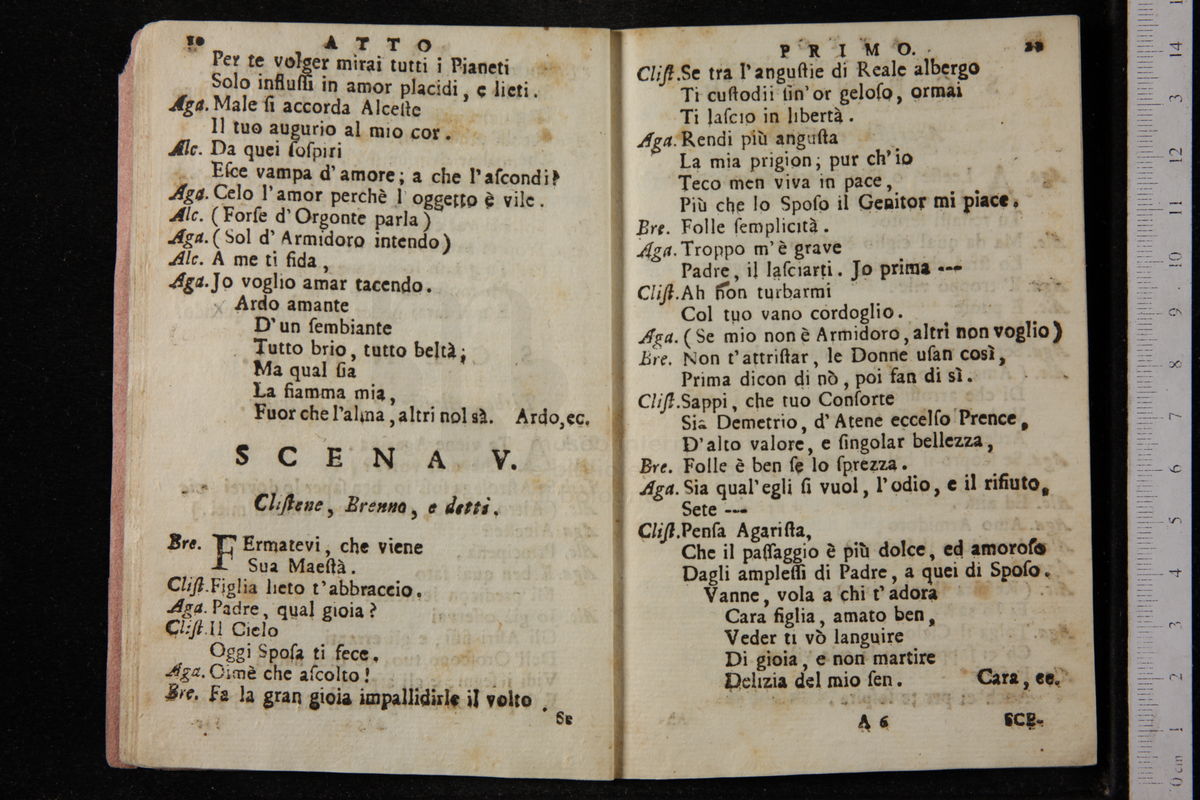 10 ATTO
Per te volger mirai tutti i Pianeti
Solo influſſi in amor placidi, e lieti.
Aga. Male ſi accorda Alceſte
Il tuo augurio al mio cor.
Alc. Da quei ſoſpiri
Eſce vampa d'amore; a che l'aſcondi?
Aga. Celo l'amor perchè l oggetto è vile.
Alc. (Forſe d'Orgonte parla)
Aga. (Sol d'Armidoro intendo)
Alc. A me ti fida,
Aga. Jo voglio amar tacendo.
Ardo amante
D'un ſembiante
Tutto brio, tutto beltà;
Ma qual ſia
La fiamma mia,
Fuor che l'alma, altri nol sà. Ardo, ec.
SCENA V.
Cliſtene, Brenno, e detti.
Bre. FErmatevi, che viene
Sua Maeſtà.
Cliſt. Figlia lieto t'abbraccio.
Aga. Padre, qual gioia?
Cliſt. Il Cielo
Oggi Spoſa ti fece.
Aga. Oimè che aſcolto!
Bre. Fa la gran gioia impallidirle il volto.
Se
PRIMO.
Cliſt. Se tra l'anguſtie di Reale albergo
Ti cuſtodii ſin'or geloſo, ormai
Ti laſcio in libertà.
Aga. Rendi più anguſta
La mia prigion; pur ch'io
Teco men viva in pace,
Più che lo Spoſo il Genitor mi piace.
Bre. Folle ſemplicità.
Aga. Troppo m'è grave
Padre, il laſciarti. Jo prima ---
Cliſt. Ah non turbarmi
Col tuo vano cordoglio.
Aga. (Se mio non è Armidoro, altri non voglio)
Bre. Non t'attriſtar, le Donne uſan così,
Prima dicon di nò, poi fan di sì.
Cliſt. Sappi, che tuo Conſorte
Sia Demetrio, d'Atene eccelſo Prence,
D'alto valore, e ſingolar bellezza,
Bre. Folle è ben ſe lo ſprezza.
Aga. Sia qual'egli ſi vuol, l'odio, e il rifiuto,
Sete ---
Cliſt. Penſa Agariſta,
Che il paſſaggio è più dolce, ed amoroſo
Dagli ampleſſi di Padre, a quei di Spoſo.
Vanne, vola a chi t'adora
Cara figlia, amato ben,
Veder ti vò languire
Di gioia, e non martire
Delizia del mio ſen. Cara, ec.
A 6 SCE-
0 cm 1 2 3 4 5 6 7 8 9 10 11 12 13 14